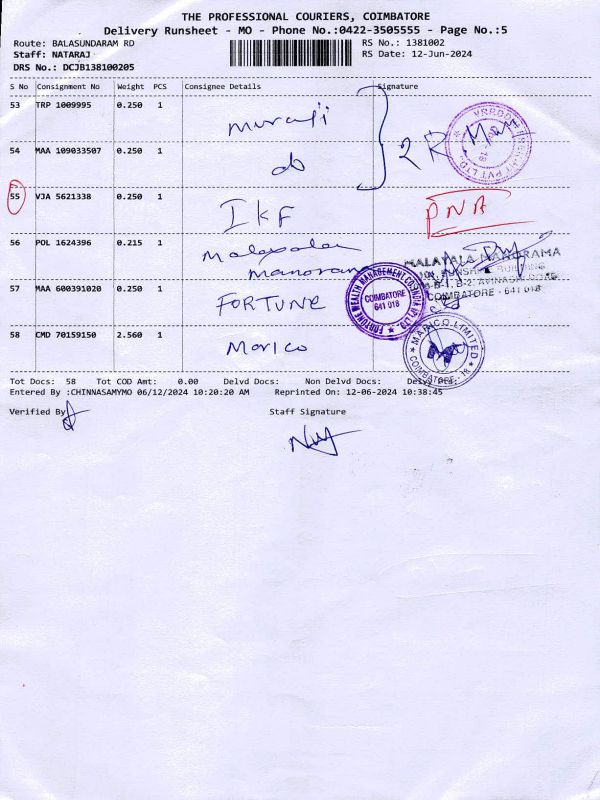 THE PROFESSIONAL COURIERS, COIMBATORE
Delivery Runsheet - MO - Phone No.:0422-3505555 - Page No.:5
Route: BALASUNDARAM RD RS No.: 1381002
Staff: NATARAJ RS Date: 12-Jun-2024
DRS No.: DCJB138100205
S No Consignment No Weight PCS Consignee Details Signature
53 TRP 1009995 0.250 1
muraji
2R
54 MAA 109033507 0.250 1
do
55 VJA 5621338 0.250 1
IKF PNA
56 POL 1624396 0.215 1
Malayalam
manorama
MALAYALA MANORAMA
COIMBATORE - 641 018
57 MAA 600391020 0.250 1
FORTUNE
FORTUNE WEALTH MANAGEMENT CO INDIA PVT LTD
COIMBATORE
641 018
58 CMD 70159150 2.560 1
Marico
MARICO LIMITED
COIMBATORE - 18
Tot Docs: 58 Tot COD Amt: 0.00 Delvd Docs: Non Delvd Docs:
Entered By :CHINNASAMYMO 06/12/2024 10:20:20 AM Reprinted On: 12-06-2024 10:38:45
Verified By Staff Signature